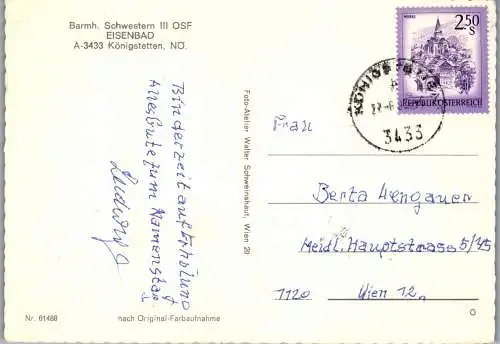 Barmh. Schwestern III OSF
EISENBAD
A-3433 Königstetten, NÖ.
Bin derzeit auf Erholung
Alles Gute zum Namenstag
Ludwig
Foto-Atelier Walter Schweinshaut, Wien 20
2.50
S
MURAU
REPUBLIK ÖSTERREICH
3433
Frau
Berta Wengauer
Meidl. Hauptstrass 5/45
1120 Wien 12
Nr. 61488
nach Original-Farbaufnahme
O